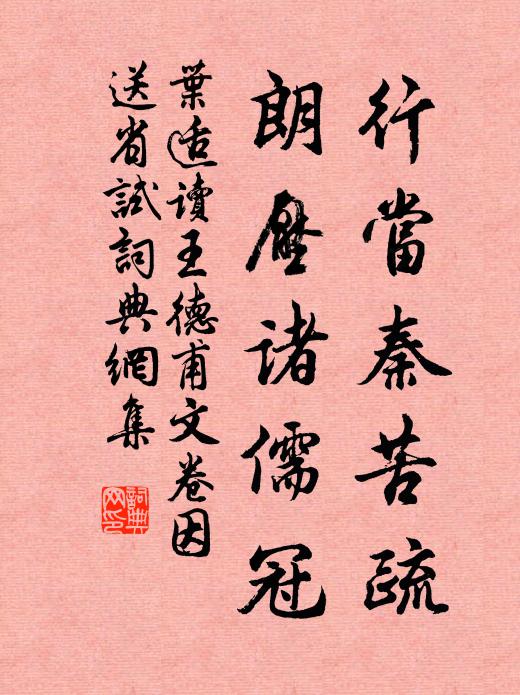 行當秦苦疏
朗壓諸儒冠
葉适讀王德甫文卷因
送省試詞典網集
詞典
网印